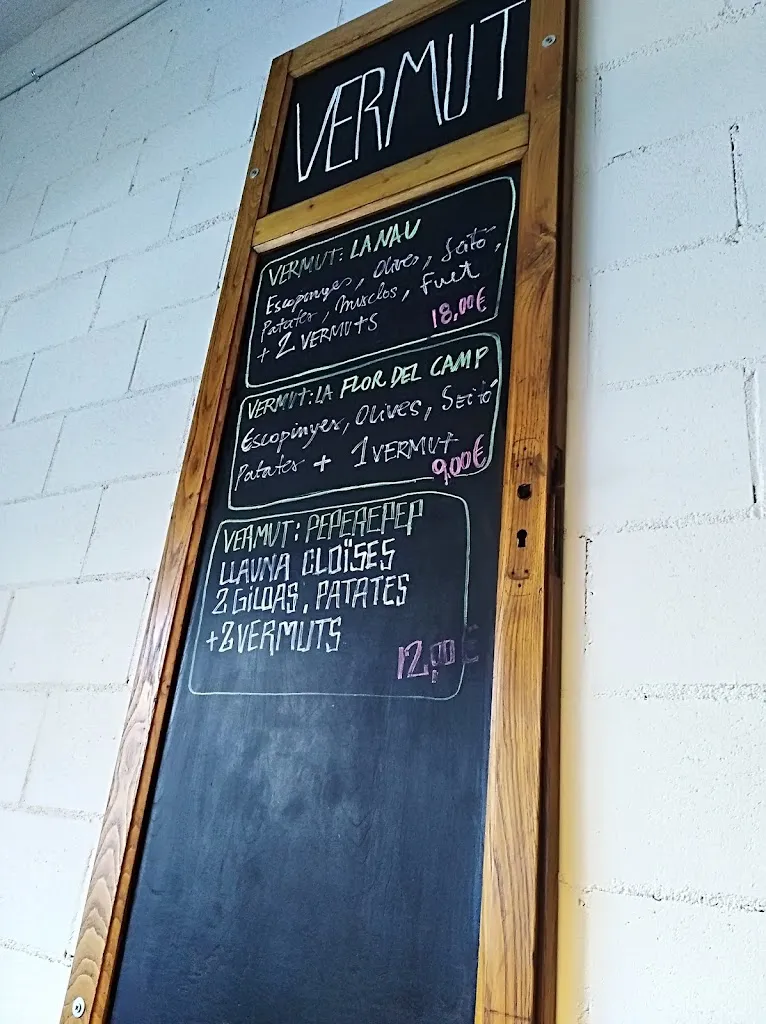 VERMUT
VERMUT: LA NAU
Escopinyes, Olives, Seitó,
Patates, Musclos, Fuet
+ 2 VERMUTS 18,00€
VERMUT: LA FLOR DEL CAMP
Escopinyes, Olives, Seitó
Patates + 1 VERMUT
9,00€
VERMUT: PEPEREPEP
LLAUNA CLOÏSES
2 GILDAS, PATATES
+2 VERMUTS
12,00€